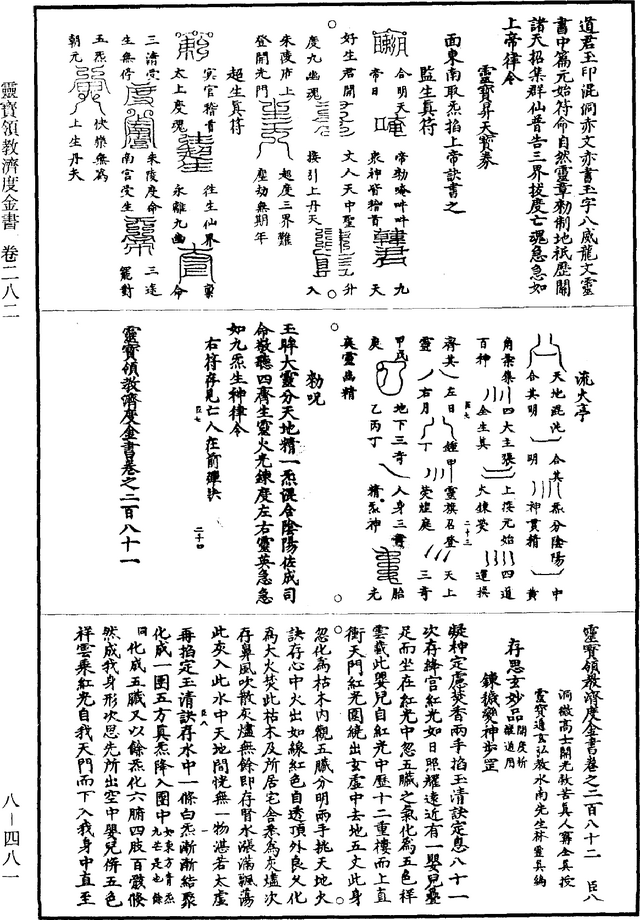 道君玉印混洞亦文亦書玉字八威龍文靈
書中篇元始符命自然靈章勑制地祇歷關
諸天招集群仙普告三界拔度亡魂急急如
上帝律令
靈寶昇天寶券
面東南取炁掐上帝訣書之
監生真符
合明天 帝勑唵吽吽 九
帝日 衆神皆稽首 天
好生君開 文人天中聖 升
度九幽魂 接引上丹天 入
朱陵府上 超度三界難
登開光門 歷劫無期年
超生真符
冥官稽首 往生仙界 稟
太上度魂 永離九幽 命
三清受 朱陵度命 三途
生無停 南宫受生 罷對
五炁 快樂無爲
朝元 上生丹天
流火亭
天地混沌 合其炁分陰陽 中
合其明 明 神貫精 黄
角羅集 四大主張 上揆元始 四道
百神 全生其 火鍊熒 運撰
齊其 左日 鍾甲 靈旗召登 天上
靈 右月 丁 熒煌庭 三奇
甲戊 地下三奇 人身三寶 胎
庚 乙丙丁 精炁神 元
爽靈幽精
勑呪
玉眸大靈分天地精一炁混合陰陽佐成司
命敬聽四齊生靈火光鍊度左右靈英急急
如九炁生神律令
右符存見亡人在前彈訣
靈寶領教濟度金書卷之二百八十一
靈寶領教濟度金書卷之二百八十二 臣八
洞微高士開光救苦真人甯全真授
靈寶通玄弘教水南先生林靈真編
存思玄妙品 開度祈禳通用
鍊穢變神步罡
凝神定慮焚香兩手掐玉清訣定息八十一
次存絳宫紅光如日照耀遠近有一嬰兒疊
足而坐在紅光中忽五臟之氣化爲五色祥
雲載此嬰兒自紅光中歷十二重樓而上直
衝天門紅光圍繞出玄虚中去地五丈此身
忽化爲枯木内觀五臟分明兩手挑天地火
訣存心中火出如線紅色自透頂外良久化
爲大火焚此枯木及所居宅舍悉爲灰燼次
存鼻風吹散灰燼無餘即存腎水漲滿飄蕩
此灰入此水中天地間恍無一物湛若太虚
再掐定玉清訣存水中一條白炁漸漸結聚
化成一團五方真炁降入團中如東方青炁九芒是也餘
同化成五臟又以餘炁化六腑四肢百骸倏
然成我身形次思先所出空中嬰兒併五色
祥雲乘紅光自我天門而下入我身中直至
靈寶領教濟度金書 卷二八二
八－四八一